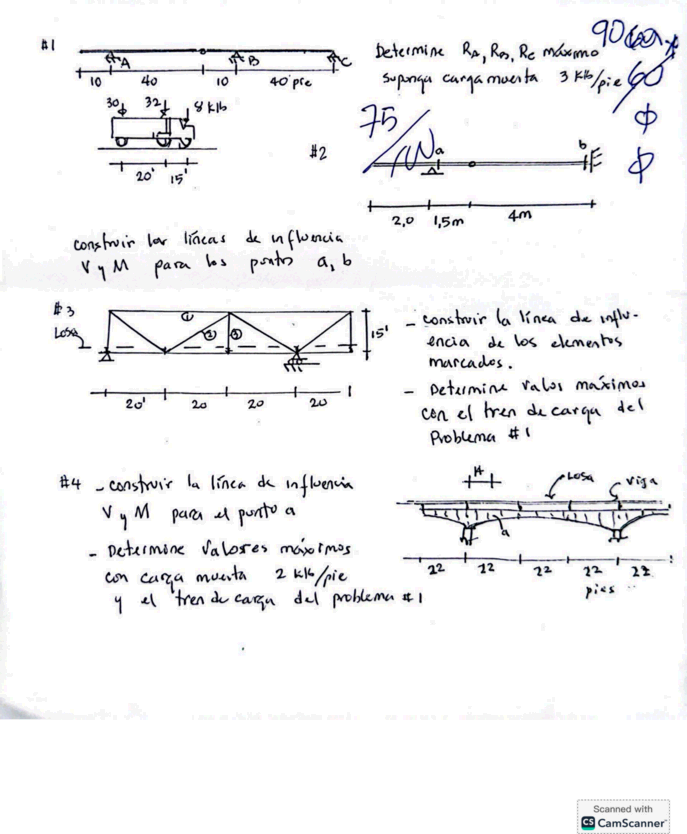 #1
A B C
10 40 10 40 pie
Determine RA, RB, RC máximo
suponga carga muerta 3 klb/pie
90
60
75
30 32 8 klb
20' 15'
#2
a b
2,0 1,5m 4m
construir las líneas de influencia
V y M para los punto a, b
#3
Losa
1 2 3
15'
20' 20 20 20
- construir la línea de influ-
encia de los elementos
marcados.
- Determine valos máximos
con el tren de carga del
Problema #1
#4 - construir la línea de influencia
V y M para el punto a
- Determine valores máximos
con carga muerta 2 klb/pie
y el tren de carga del problema #1
14 Losa viga
a
22 22 22 22 22
pies
Scanned with
CS CamScanner